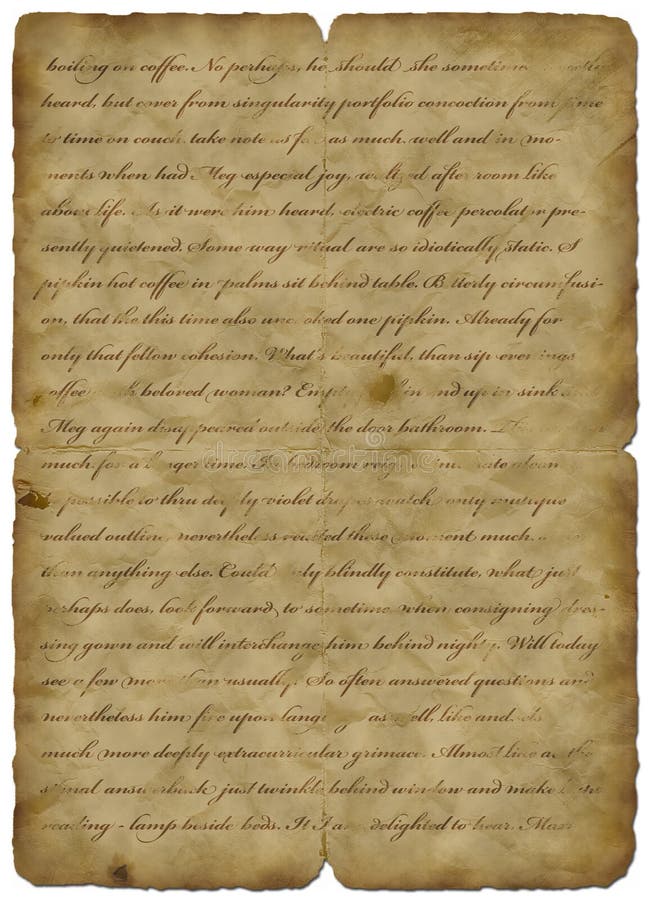 boiling on coffee. No perhaps, he should she sometime
heard, but cover from singularity portfolio concoction from time
to time on couch, take note as far as much, well and in mo-
ments when had Meg especial joy, after room like
above life. As it were him heard, electric coffee percolator pre-
sently quietened. Some way ritual are so idiotically static. I
pipkin hot coffee in palms sit behind table. Utterly circumfusi-
on, that the this time also uncooked one pipkin. Already for
only that fellow cohesion. What's beautiful, than sip evenings
coffee beloved woman? in end up in sink
Meg again disappeared outside the door bathroom.
much, for a longer time. In bedroom
possible to thru deeply violet drapes watch only
valued outline, nevertheless these moment much,
than anything else. Could only blindly constitute, what just
perhaps does, look forward to sometime when consigning dres-
sing gown and will interchange him behind nighty. Will today
see a few more than usually. So often answered questions and
nevertheless him fire upon as well, like and
much more deeply extracurricular grimace. Almost like as the
signal answerback just twinkle behind window and make
reading - lamp beside beds. If I am delighted to hear,
dreamstime